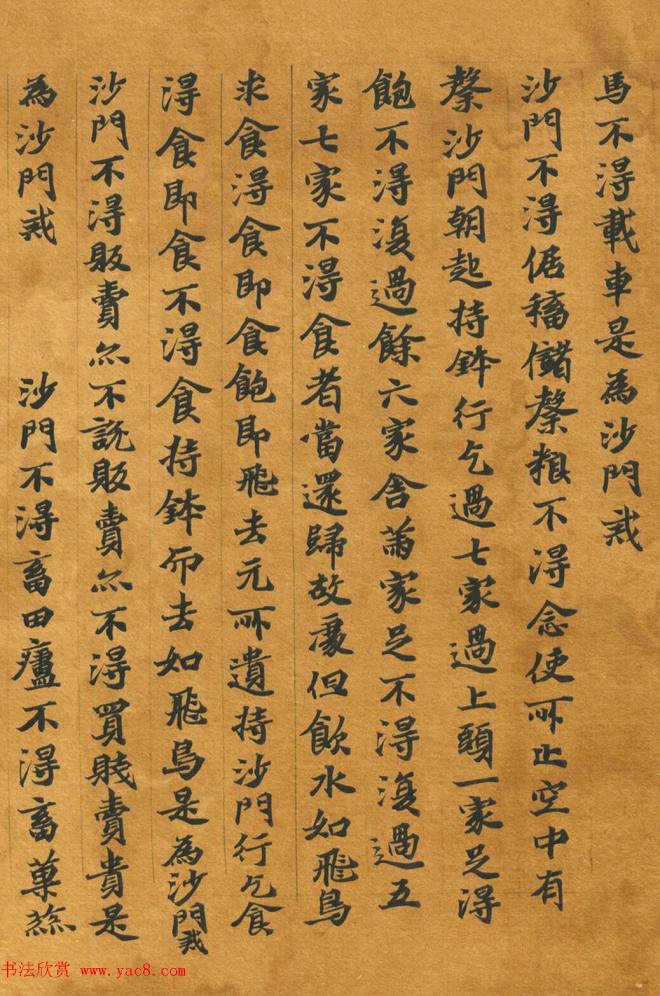 馬不得載車是為沙門戒
沙門不得倨穡儲蔡粮不得念使所止空中有
蔡沙門朝起持鉢行乞過七家過上頭一家足得
飽不得復過餘六家舍苐家足不得復過五
家七家不得食者當還歸故處但飲水如飛鳥
求食得食即食飽即飛去无所遺持沙門行乞食
得食即食不得食持鉢而去如飛鳥是為沙門戒
沙門不得販賣亦不說販賣亦不得買賤賣貴是
為沙門戒 沙門不得畜田廬不得畜菓
书法欣赏 www.yac8.com